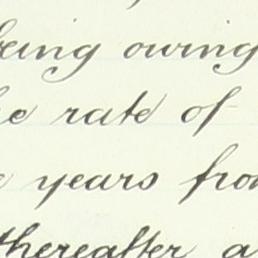 being owing
he rate of
years from
thereafter a